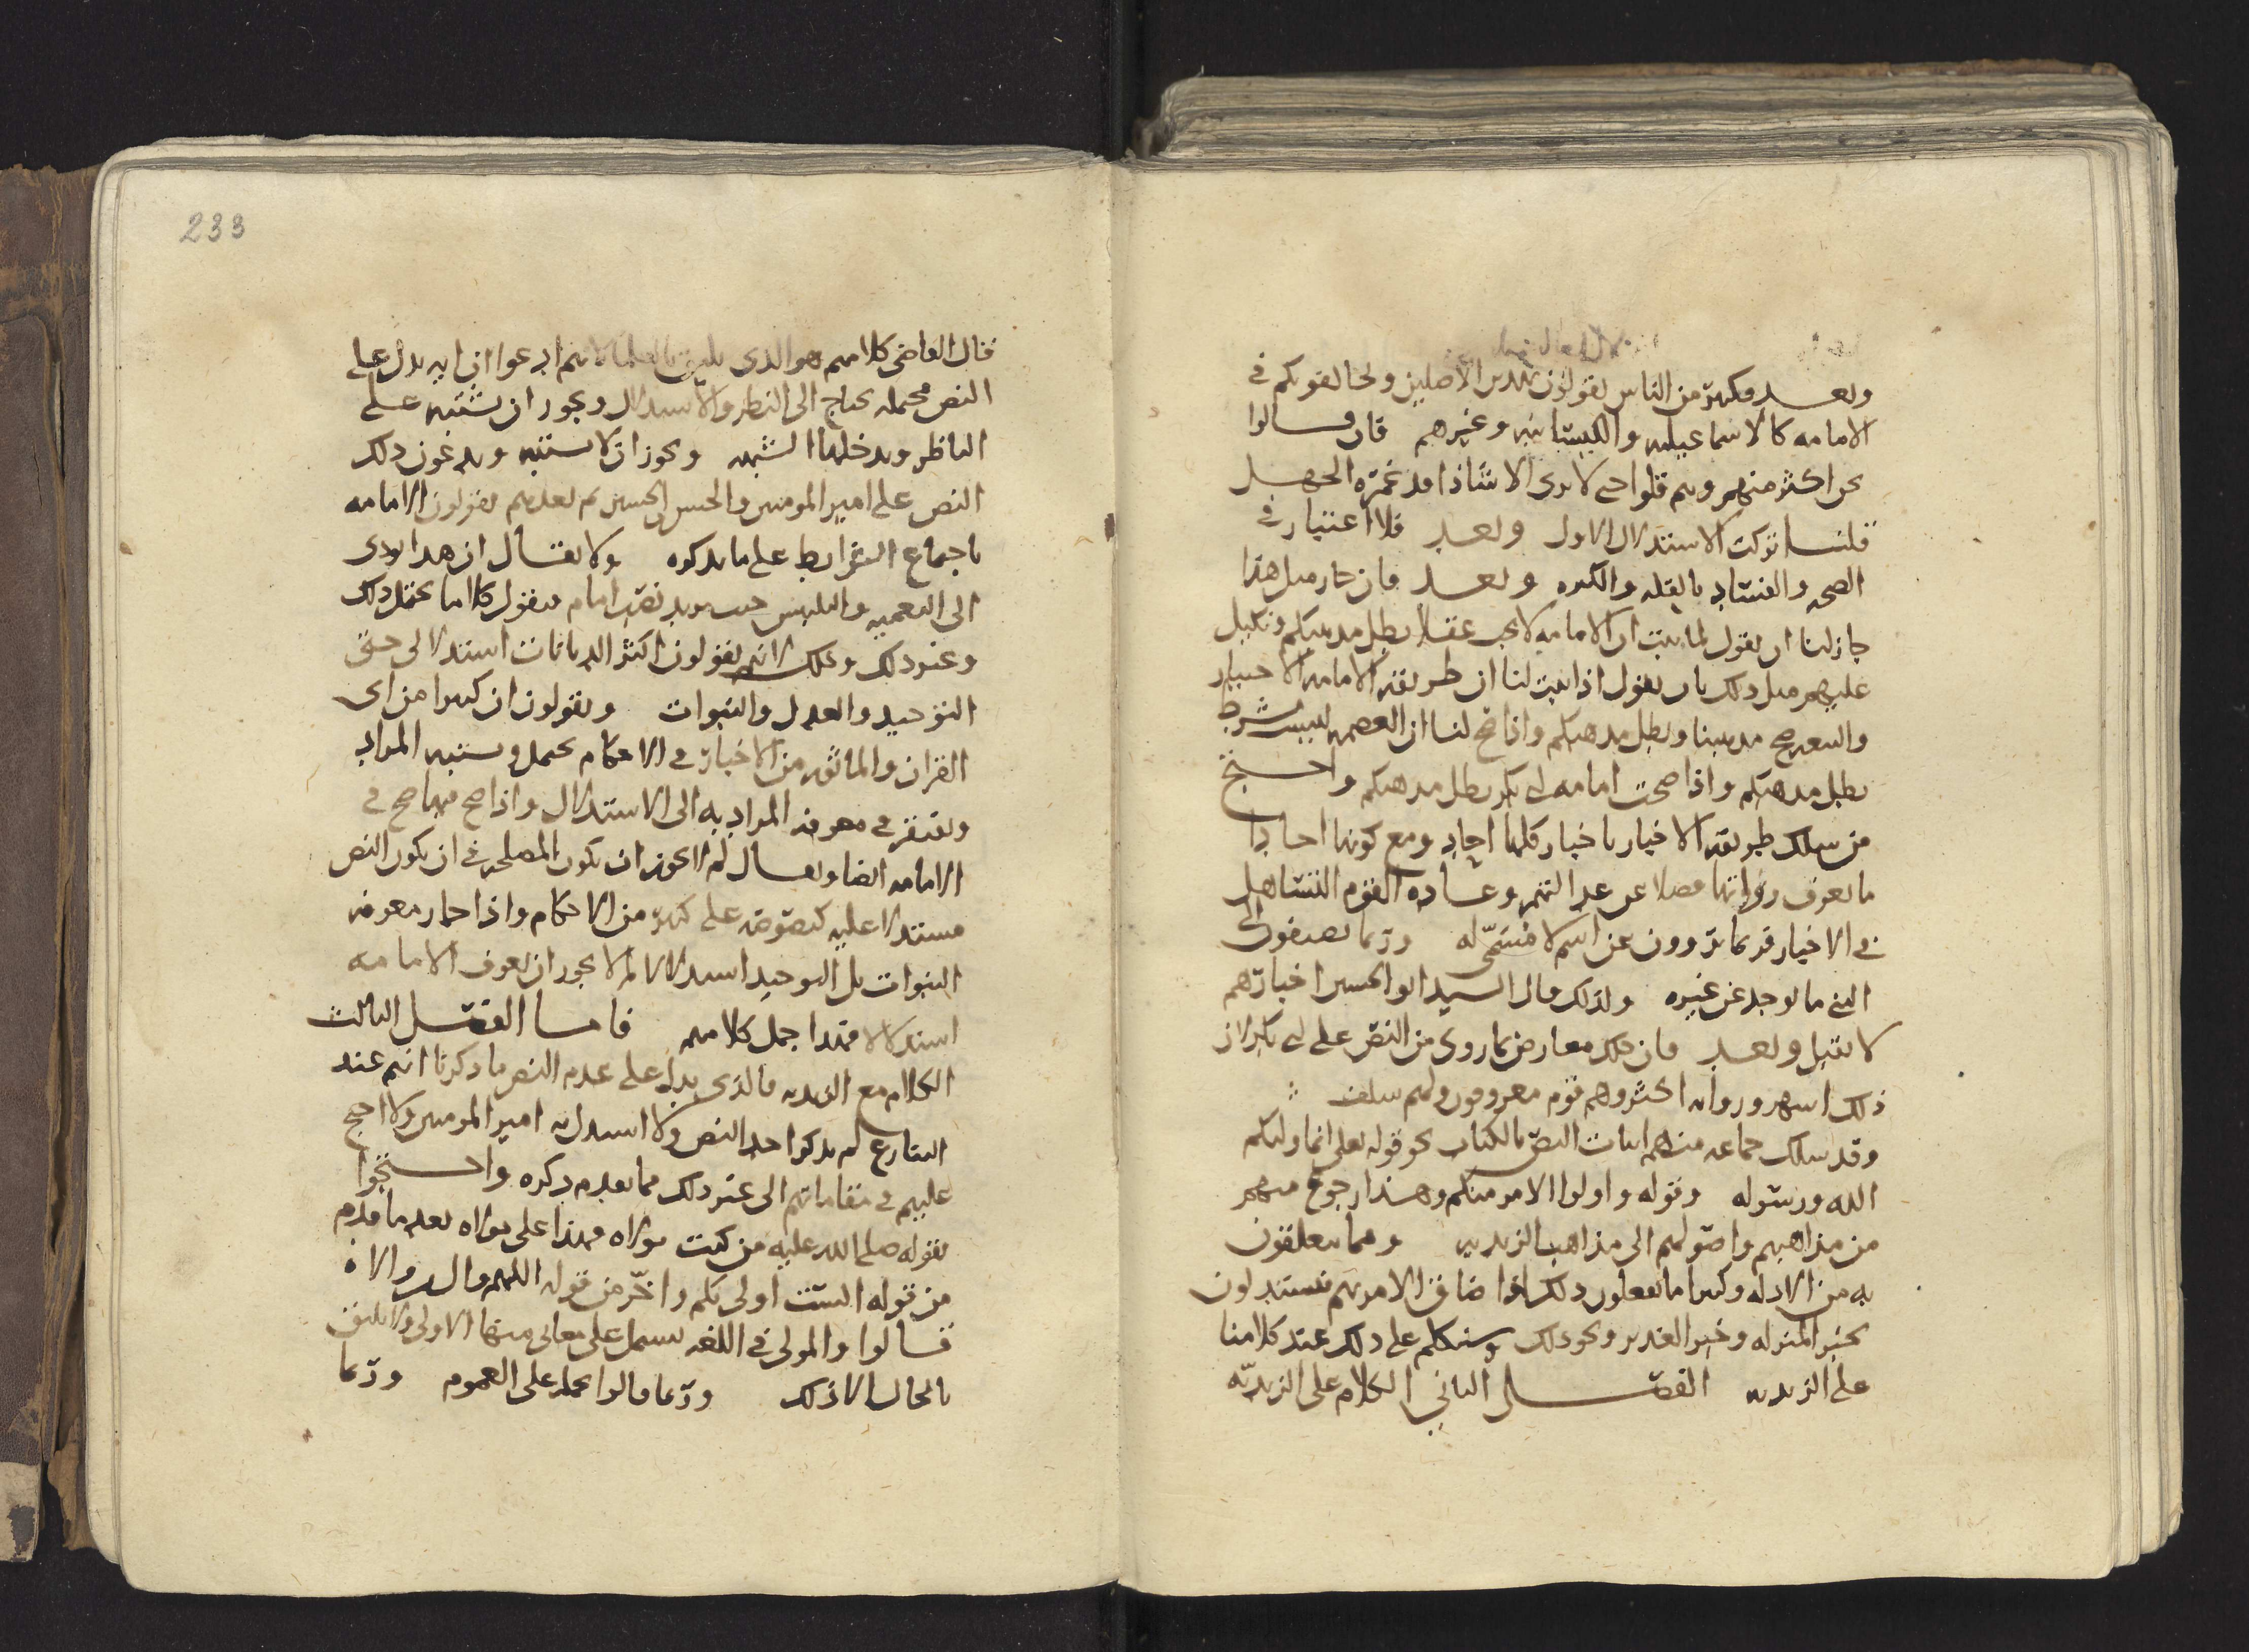 وبعد فكثير من الناس يقولون بهدين الاصلين ويخالفونكم في
الامامه كالاسماعيليه والكيسانيه وغيرهم فان قالوا
نحن اكثر منهم وهم قلوا حتى لا يرى الا شاذا قد غمره الجهل
قلنا تركت الاستدلال الاول وبعد فلا اعتبار في
الصحه والفساد بالقله والكثره وبعد فان جاز مثل هذا
جاز لنا ان نقول لما ثبت ان الامامه لا تجب عقلا بطل مذهبكم ونكيل
عليهم مثل ذلك بان نقول اذا ثبت لنا ان طريقه الامامه الاختيار
والبيعه صح مذهبنا وبطل مذهبكم واذا صح لنا ان العصمه ليست بشرط
بطل مذهبكم واذا صحت امامه ابي بكر بطل مذهبكم واحتج
من سلك طريقه الاخبار باخبار كلها احاد ومع كونها احادا
ما تعرف رواتها فضلا عن عدالتهم وعاده القوم التساهل
في الاخبار فربما يروون عن اسم لا مسمى له وربما يضيفون الى
الشي ما يوجد عن غيره ولذلك قال السيد ابو الحسين اخبارهم
لا تقبل وبعد فان ذلك معارض بما روي من النص على ابي بكر لان
ذلك اشهر ورواته اكثر وهم قوم معروفون ولهم سلف
وقد سلك جماعه منهم اثبات النص بالكتاب نحو قوله تعلى انما وليكم
الله ورسوله وقوله واولوا الامر منكم وهذا رجوع منهم
من مذاهبهم واصولهم الى مذاهب الزيديه ومما يتعلقون
به من الادله وكثيرا ما يفعلون ذلك اذا ضاق الامر بهم فيستدلون
بخبر المنزله وخبر الغدير ونحو ذلك وسنتكلم على ذلك عند كلامنا
على الزيديه الفصل الثاني الكلام على الزيديه
233
قال القاضي كلامهم هو الذي يليق بالعلما لانهم ادعوا ان ايه تدل على
النص محتمله تحتاج الى النظر والاستدلال ويجوز ان تشتبه على
الناظر ويدخلها الشبه ويجوز ان لا تشتبه ويدعون ذلك
النص على امير المومنين والحسن والحسين ثم بعدهم يقولون الامامه
باجماع الشرايط على ما نذكره ولا يقال ان هذا يودي
الى التعميه والتلبيس حيث يريد نص امام فيقول كلاما يحتمل ذلك
وغير ذلك وذلك لانهم يقولون اكثر الديانات استدلالي حتى
التوحيد والعدل والنبوات ويقولون ان كثيرا من اي
القران والماثور من الاخبار في الاحكام يحتمل ويشتبه المراد
ويفتقر في معرفه المراد به الى الاستدلال واذا صح فيها صح في
الامامه ايضا ويقال لم لا يجوز ان تكون المصلحه في ان يكون النص
مستدلا عليه كنصوصه على كثير من الاحكام واذا جاز معرفه
النبوات بل التوحيد استدلالا لم لا يجوز ان تعرف الامامه
استدلالا فهذا جمل كلامهم فاما الفصل الثالث
الكلام مع الزيديه فالذي يدل على عدم النص ما ذكرنا انهم عند
التنازع لم يذكر احد النص ولا استدل به امير المومنين ولا احتج
عليهم في مقاماتهم الى غير ذلك مما تقدم ذكره واحتجوا
بقوله صلى الله عليه من كنت مولاه فهذا على مولاه بعد ما قدم
من قوله الست اولى بكم واخر من قوله اللهم وال من والاه
قالوا والمولى في اللغه تشتمل على معاني منها الاولى ولا يليق
بالحال الا ذلك وربما قالوا نحمله على العموم وربما